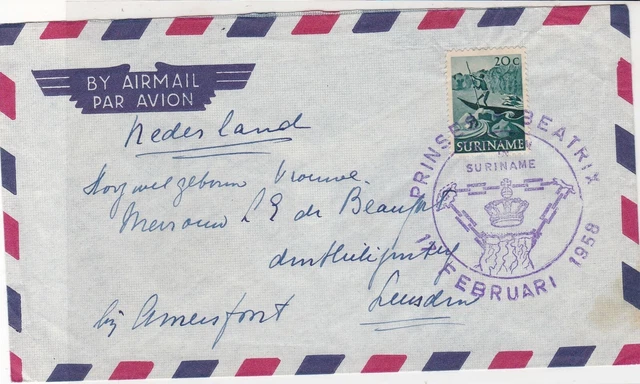 BY AIRMAIL
PAR AVION
20c
SURINAME
PRINSES BEATRIX
SURINAME
FEBRUARI 1958
Nederland
Hoogwelgeboren Vrouwe
Mevrouw de Beaufort
Leusden
bij Amersfoort